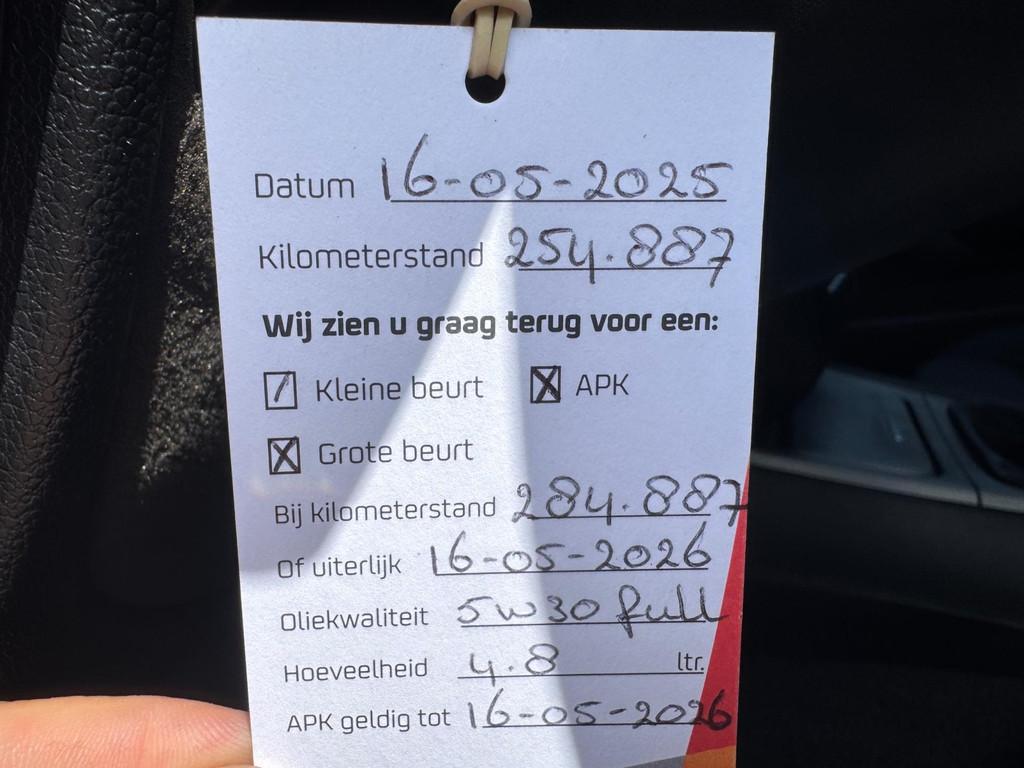 Datum 16-05-2025
Kilometerstand 254.887
Wij zien u graag terug voor een:
Kleine beurt APK
Grote beurt
Bij kilometerstand 284.887
Of uiterlijk 16-05-2026
Oliekwaliteit 5w30 full
Hoeveelheid 4.8 ltr.
APK geldig tot 16-05-2026